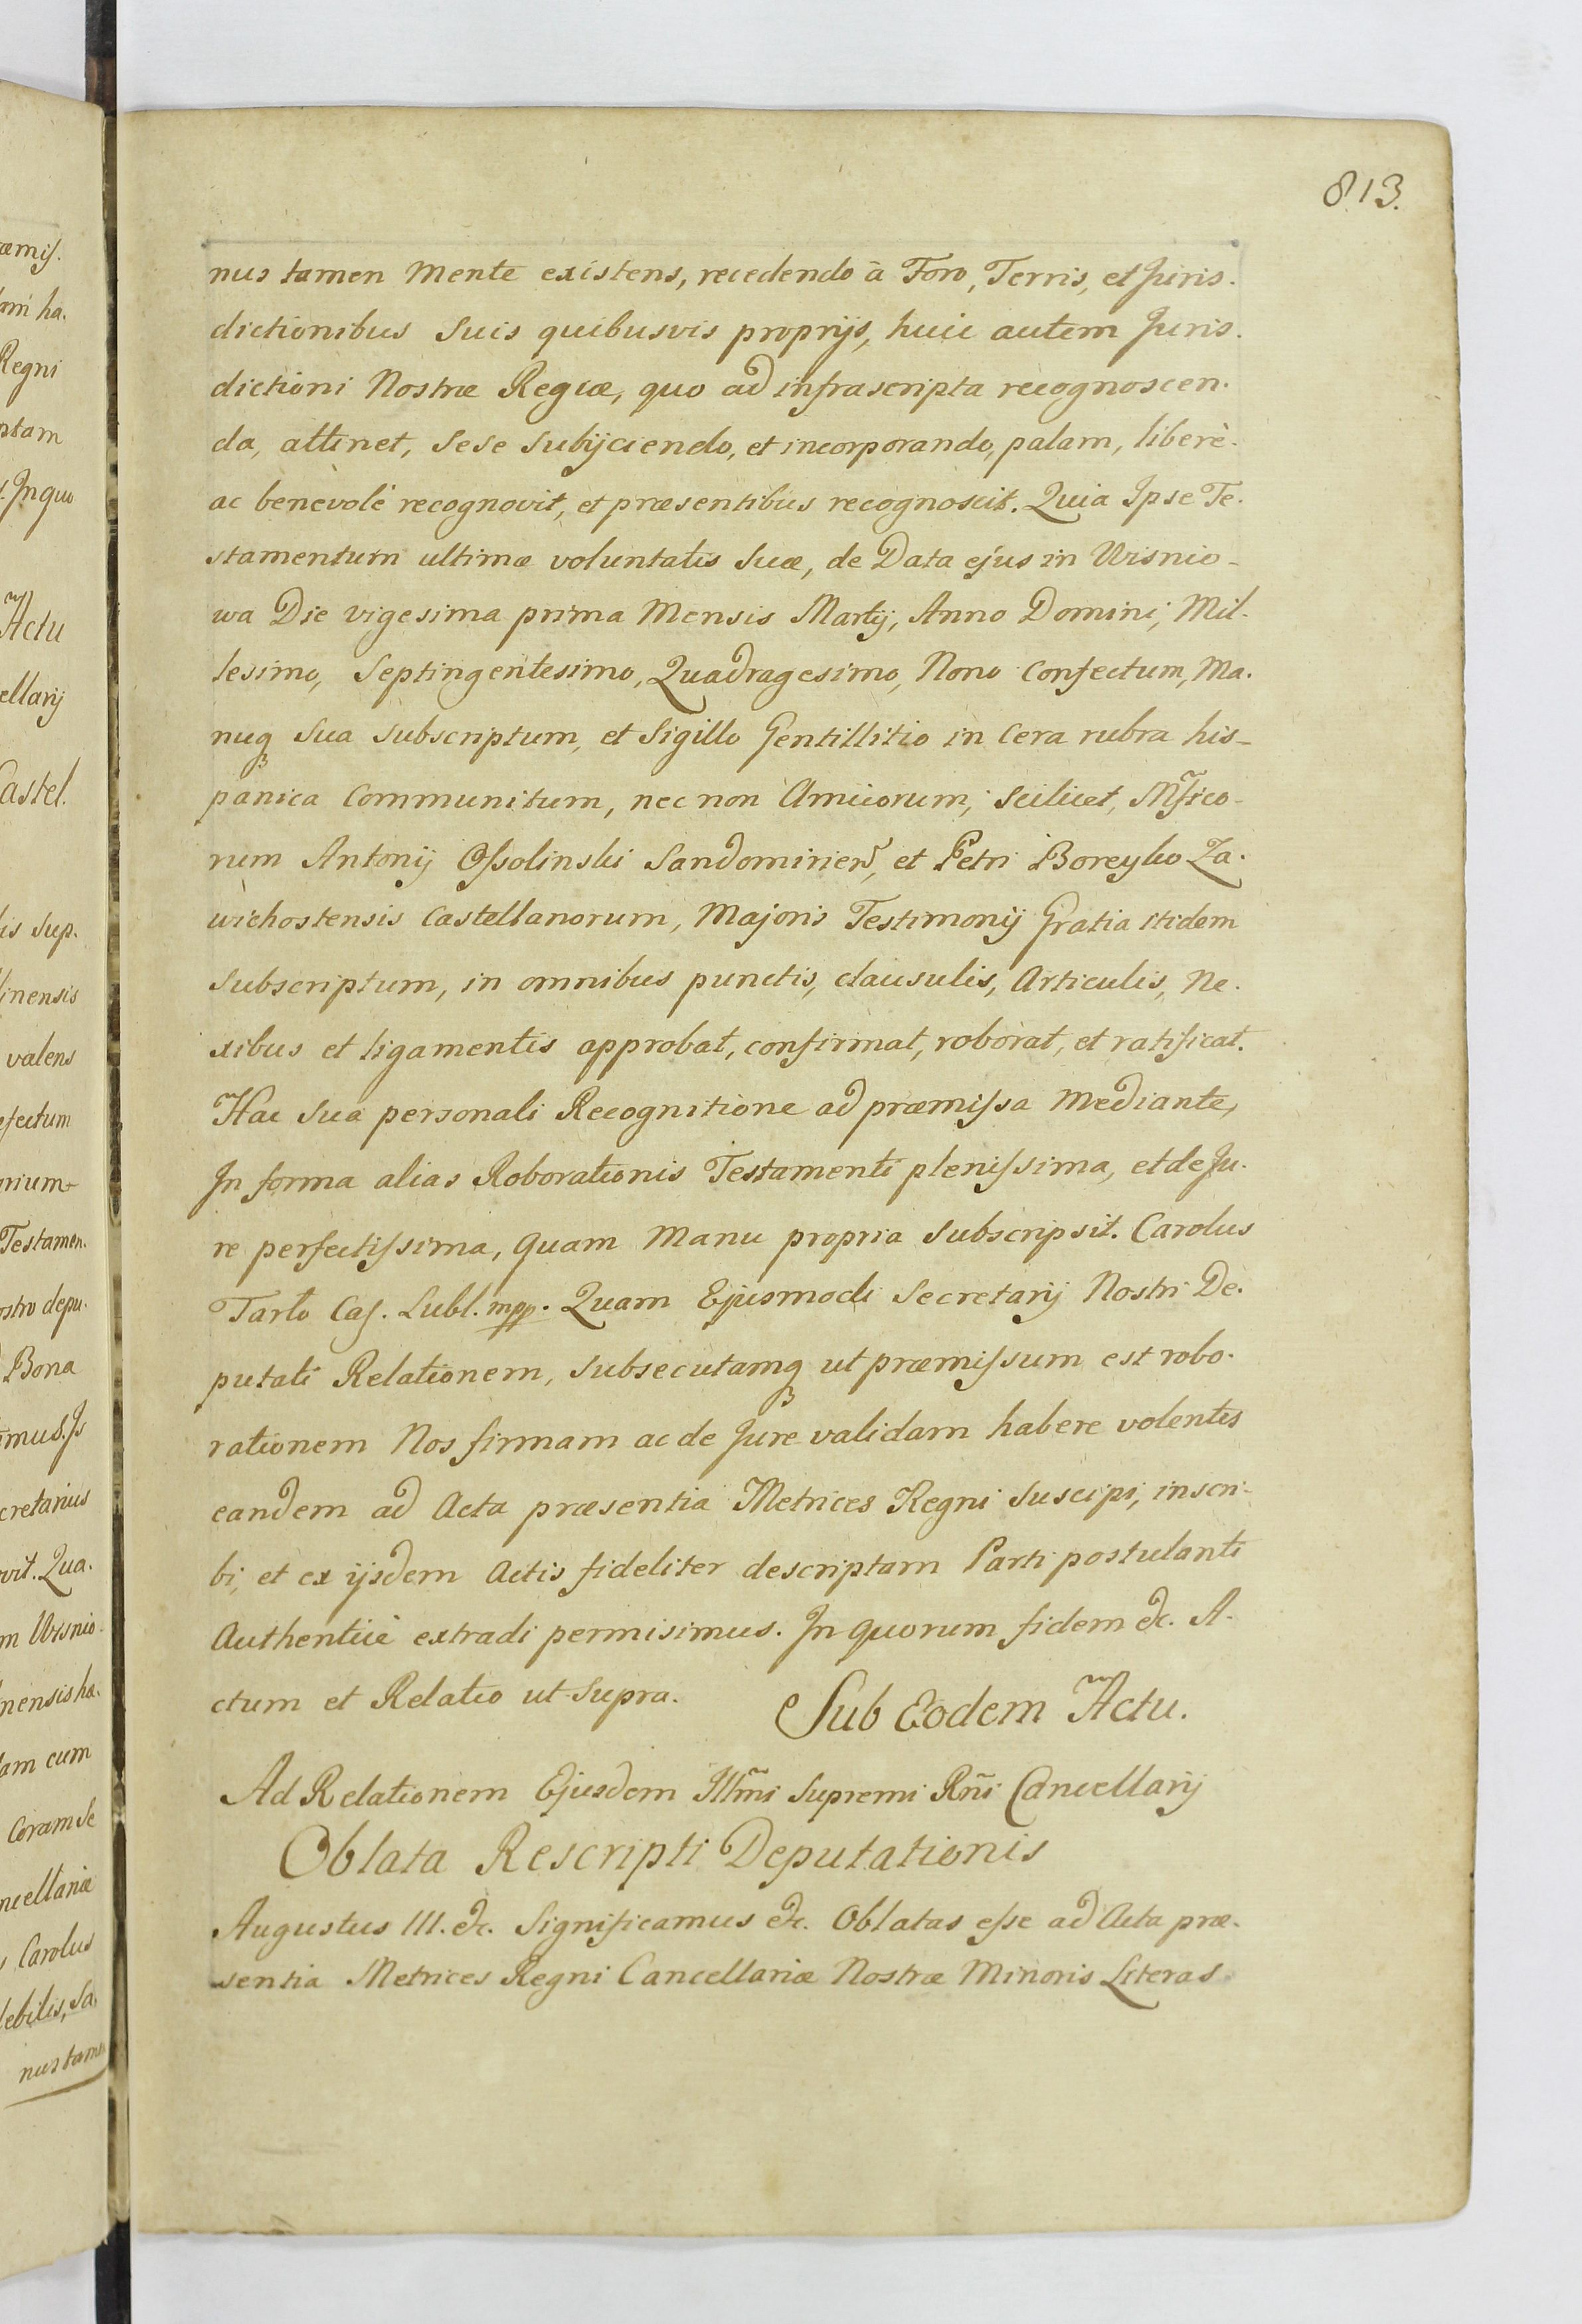 813.
nus tamen Mente existens, recedendo à Foro, Terris, et Juris.
dictionibus Suis quibusvis proprijs, huic autem Juris.
dictioni Nostræ Regiæ, quo ad infrascripta recognoscen.
da, attinet, Sese Subijciendo, et incorporando, palam, liberè.
ac benevolè recognovit, et præsentibus recognoscit. Quia Ipse Te.
stamentum ultimæ voluntatis Suæ, de Data ejus in Wisnio-
wa Die vigesima prima Mensis Martij, Anno Domini, Mil.
lesimo, Septingentesimo, Quadragesimo, Nono Confectum, Ma.
nuq3 Sua Subscriptum, et Sigillo Gentillitio in Cera rubra his-
panica Communitum, nec non Amicorum, Scilicet, Mfico-
rum Antonij Oſsolinski Sandomirien̄, et Petri Boreyko Za.
wichostensis Castellanorum, Majoris Testimonij Gratia itidem
Subscriptum, in omnibus punctis, clausulis, Articulis, Ne.
xibus et ligamentis approbat, confirmat, roborat, et ratificat.
Hac Sua personali Recognitione ad præmiſsa Mediante,
In forma alias Roborationis Testamenti pleniſsima, et de Ju.
re perfectiſsima, Quam Manu propria Subscripsit. Carolus
Tarło Caſ. Lubl. mpp. Quam Ejusmodi Secretarij Nostri De.
putati Relationem, Subsecutamq3 ut præmiſsum est robo.
rationem Nos firmam ac de Jure validam habere volentes
eandem ad Acta præsentia Metrices Regni Suscipi, inscri-
bi, et ex ijsdem Actis fideliter descriptam Parti postulanti
Authenticè extradi permisimus. In quorum fidem &c. A-
ctum et Relatio ut Supra.
Sub Eodem Actu.
Ad Relationem Ejusdem Illm̃i Supremi Rñi Cancellarij
Oblata Rescripti Deputationis
Augustus III. &c. Significamus &c. Oblatas eſse ad Acta præ.
sentia Metrices Regni Cancellariæ Nostræ Minoris Literas